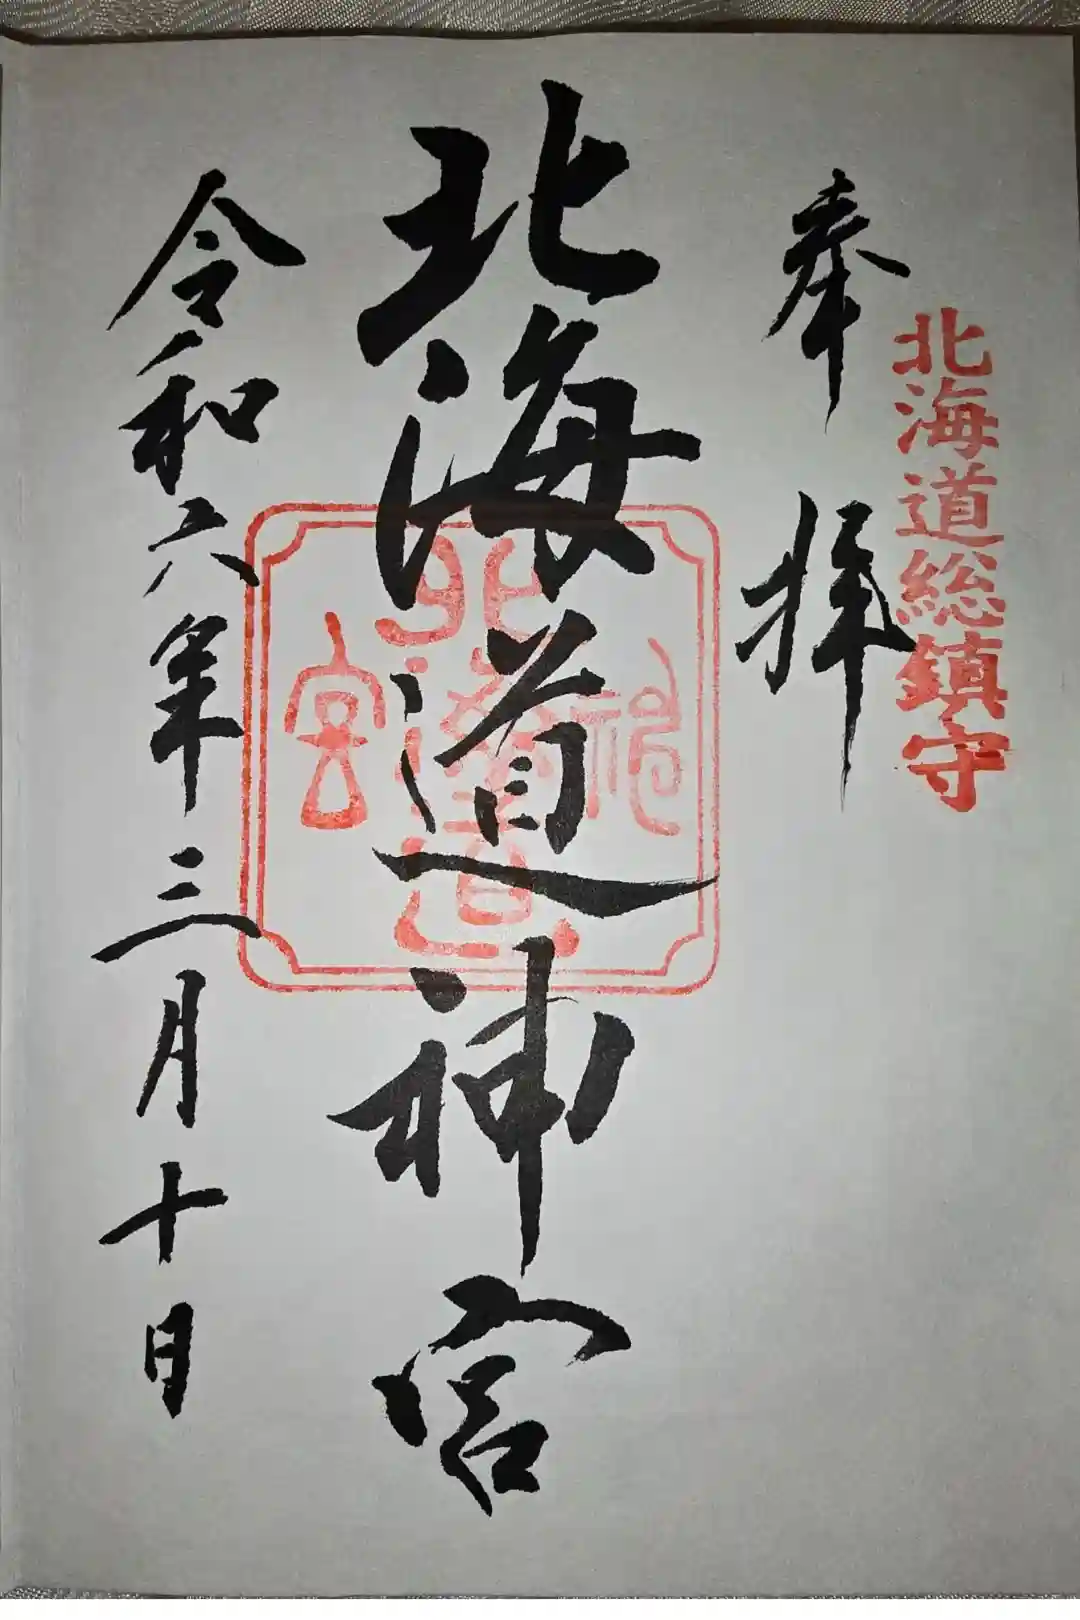 北海道総鎮守
奉拝
北海道神宮
北海道神宮
令和六年三月十日